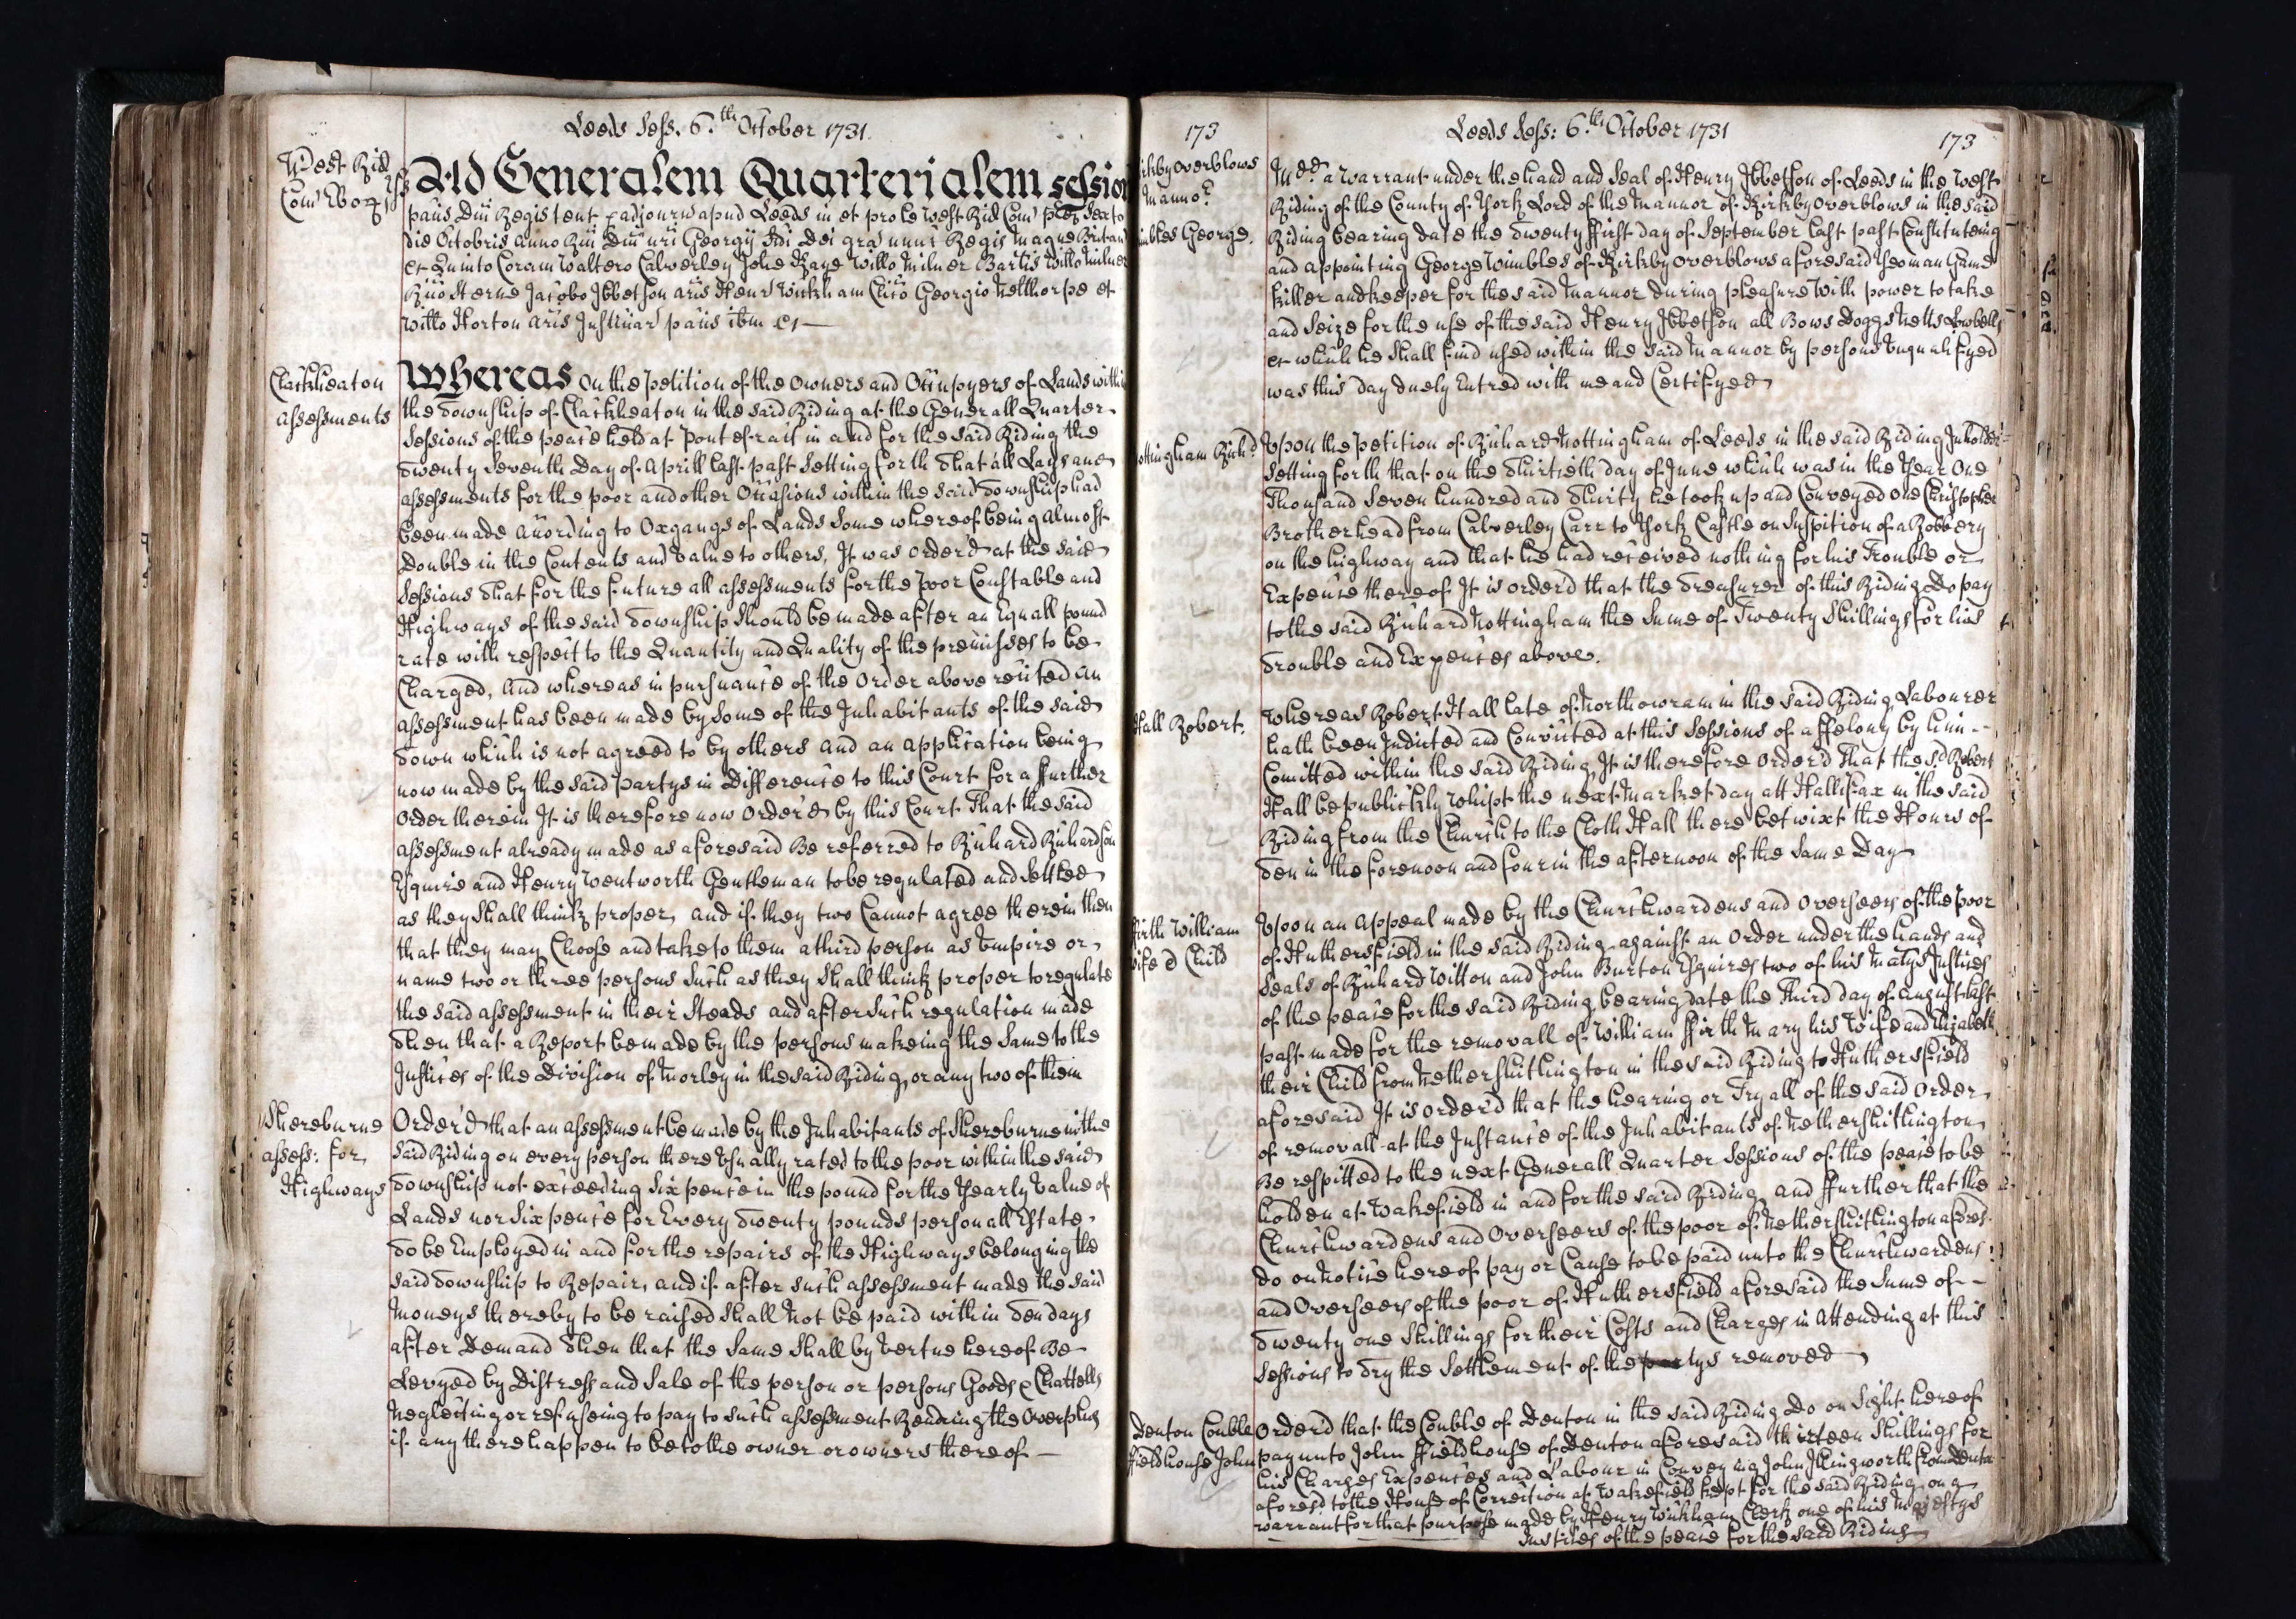 Leeds Sess. 6.th October 1731.
West Rid
Com Ebor
Ad Generalem Quarterialem session
pacis Dni Regis tent p adjourn apud Leeds in et pro le West Rid Com pred Sexto
die Octobris Anno Rni Dni nri Georgij Sdi Dei gra nunc Regis Magne Britan
&c Quinto Coram Waltero Calverley Johe Kaye Willo Milner Bartis Willo Milner
Rico Sterne Jacobo Ibbetson Aris Henr Wickham Clico Georgio Nelthorpe et
Willo Horton Aris Justiciar pacis ibm &c
Clackheaton
Assessments
Whereas On the Petition of the Owners and Occupyers of Lands within
the Township of Clackheaton in the said Riding at the Generall Quarter
Sessions of the peace held at Pontefract in and for the said Riding the
Twenty Seventh Day of Aprill last past Setting forth That all Lays and
assessments for the poor and other Occasions within the said Township had
been made according to Oxgangs of Lands Some whereof being almost
double in the Contents and Value to others, It was Order'd at the said
Sessions That for the future all assessments for the Poor Constable and
Highways of the said Township Should be made after an Equall pound
rate with respect to the Quantity and Quality of the premisses to be
Charged, And whereas in pursuance of the Order above recited an
assessment has been made by Some of the Inhabitants of the said
Town which is not agreed to by others and an application being
now made by the said Partys in Difference to this Court for a ffurther
Order therein It is therefore now Order'd by this Court That the said
assessment already made as aforesaid Be referred to Richard Richardson
Esquire and Henry Wentworth Gentleman to be regulated and Settled
as they Shall think proper, and if they two Cannot agree therein then
that they may Choose and take to them a third person as Umpire or
name two or three persons Such as they Shall think proper to regulate
the said assessment in their Steads and after Such regulation made
Then that a Report be made by the persons makeing the Same to the
Justices of the Division of Morley in the said Riding, or any two of them
Shereburne
assess: for
Highways
Order'd that an assessment be made by the Inhabitants of Shereburne in the
said Riding on every person there Usually rated to the poor within the said
Township not exceeding Six pence in the pound for the Yearly Value of
Lands nor Six pence for Every Twenty pounds personall Estate
To be Employed in and for the repairs of the Highways belonging the
said Township to Repair, and if after such assessment made the said
Moneys thereby to be raised Shall Not be paid within Ten days
after Demand Then that the Same Shall by Vertue hereof Be
Levyed by Distress and Sale of the person or persons Goods & Chattells
Neglecting or refuseing to pay to such assessment Rendring the Overplus
if any there happen to be to the owner or owners thereof
173
Leeds Sess: 6.th October 1731
173
irkby Overblows
Manno.r
imbles George
Md. a Warrant under the hand and Seal of Henry Ibbetson of Leeds in the West
Riding of the County of York Lord of the Mannor of Kirkby Overblows in the said
Riding bearing date the Twenty ffirst day of September last past Constituteing
and appointing George Wimbles of Kirkby Overblows aforesaid Yeoman Game
Killer and keeper for the said Mannor during pleasure With power to take
and Seize for the use of the said Henry Ibbetson all Bows Doggs Netts Lowbells
&c which he Shall find used within the said Mannor by persons Unqualifyed
was this day duely Entred with me and Certifyed
ottingham Rich.d
Upon the Petition of Richard Nottingham of Leeds in the said Riding Inholder
Setting forth that on the Thirtieth day of June which was in the Year One
Thousand Seven hundred and Thirty he took up and Conveyed one Christopher
Brotherhead from Calverley Carr to York Castle on Suspition of a Robbery
on the highway and that he had received nothing for his Trouble or
Expence thereof It is Order'd that the Treasurer of this Riding Do pay
to the said Richard Nottingham the Sume of Twenty Shillings for his
Trouble and Expences above.
Hall Robert.
Whereas Robert Hall late of Northowram in the said Riding Labourer
hath been Indicted and Convicted at this Sessions of a ffelony by him
Comitted within the said Riding, It is therefore Order'd That the s.d Robert
Hall be publickly Whipt the next Market day att Hallifax in the said
Riding from the Church to the Cloth Hall there betwixt the Hours of
Ten in the forenoon and four in the afternoon of the Same Day
ffirth William
Wife & Child
Upon an Appeal made by the Churchwardens and Overseers of the poor
of Huthersfield in the said Riding against an Order under the hands and
Seals of Richard Witton and John Burton Esquires two of his Ma'tys Justices
of the peace for the said Riding bearing date the Third day of August last
past made for the removall of William ffirth Mary his Wife and Elizabeth
their Child from Nethershitlington in the said Riding to Huthersfield
aforesaid It is Order'd that the hearing or Tryall of the said Order
of removall at the Instance of the Inhabitants of Nethershitlington
Be respitted to the next Generall Quarter Sessions of the peace to be
holden at Wakefield in and for the said Riding, and ffurther that the
Churchwardens and Overseers of the poor of Nethershitlington afores.d
do on Notice hereof pay or Cause to be paid unto the Churchwardens
and Overseers of the poor of Huthersfield aforesaid the Sume of
Twenty one Shillings for their Costs and Charges in Attending at this
Sessions to Try the Settlement of the partys removed
Denton Conble
ffieldhouse John
Order'd that the Conble of Denton in the said Riding Do on Sight hereof
pay unto John ffieldhouse of Denton aforesaid thirteen Shillings for
his Charges Expences and Labour in Conveying John Illingworth from Denton
afores.d to the House of Correction at Wakefield kept for the said Riding, on a
warrant for that purpose made by Henry Wickham Clerk one of his Majestys
Justices of the peace for the said Riding